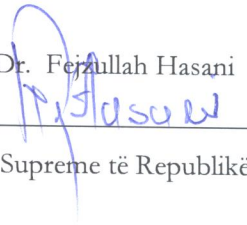 Dr. Fejzullah Hasani
Supreme të Republikë